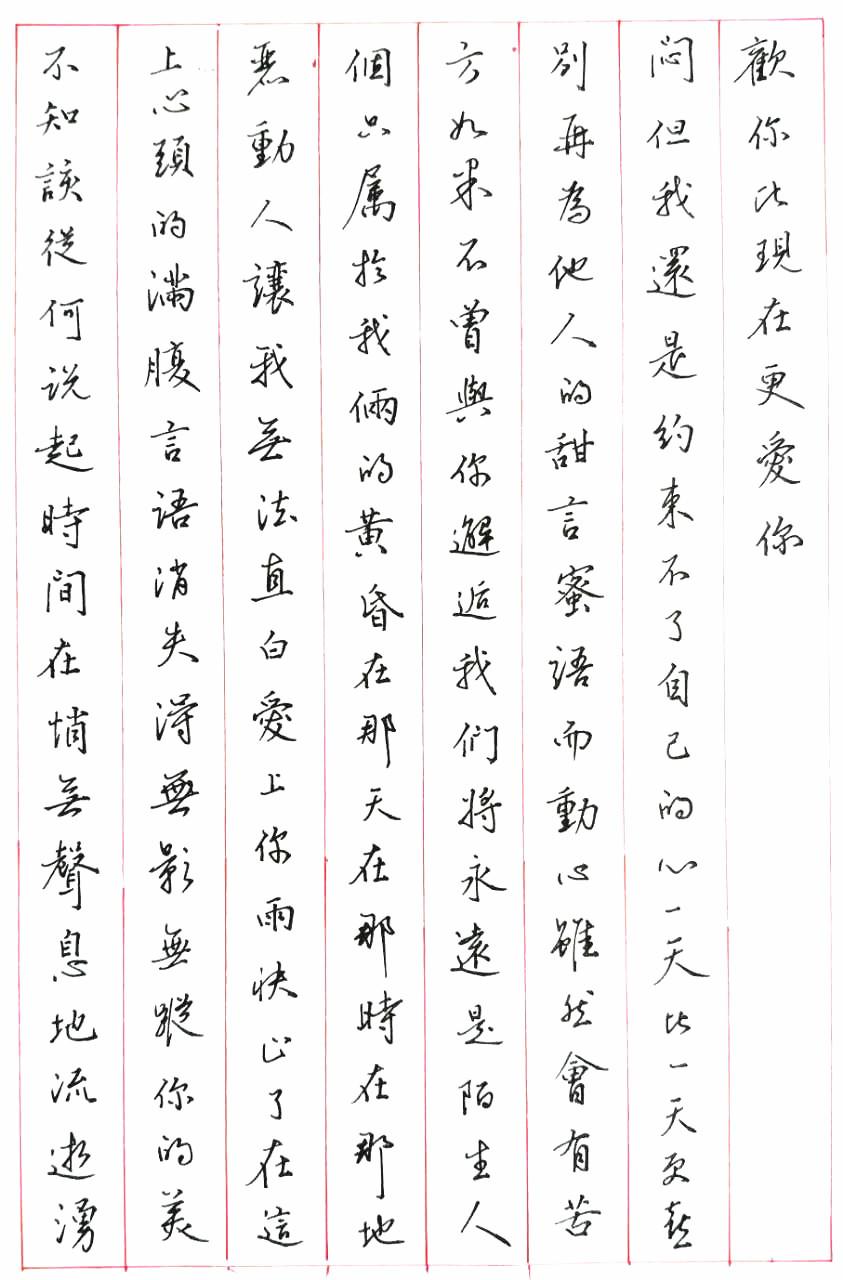 不知該從何説起時間在悄無聲息地流逝湧
上心頭的滿腹言語消失得無影無蹤你的美
動人讓我無法直白愛上你雨快止了在這
個只属於我倆的黃昏在那天在那時在那地
方如果不曾與你邂逅我們將永遠是陌生人
别再為他人的甜言蜜語而動心雖然會有苦
悶但我還是約束不了自己的心一天比一天更喜
歡你比現在更愛你